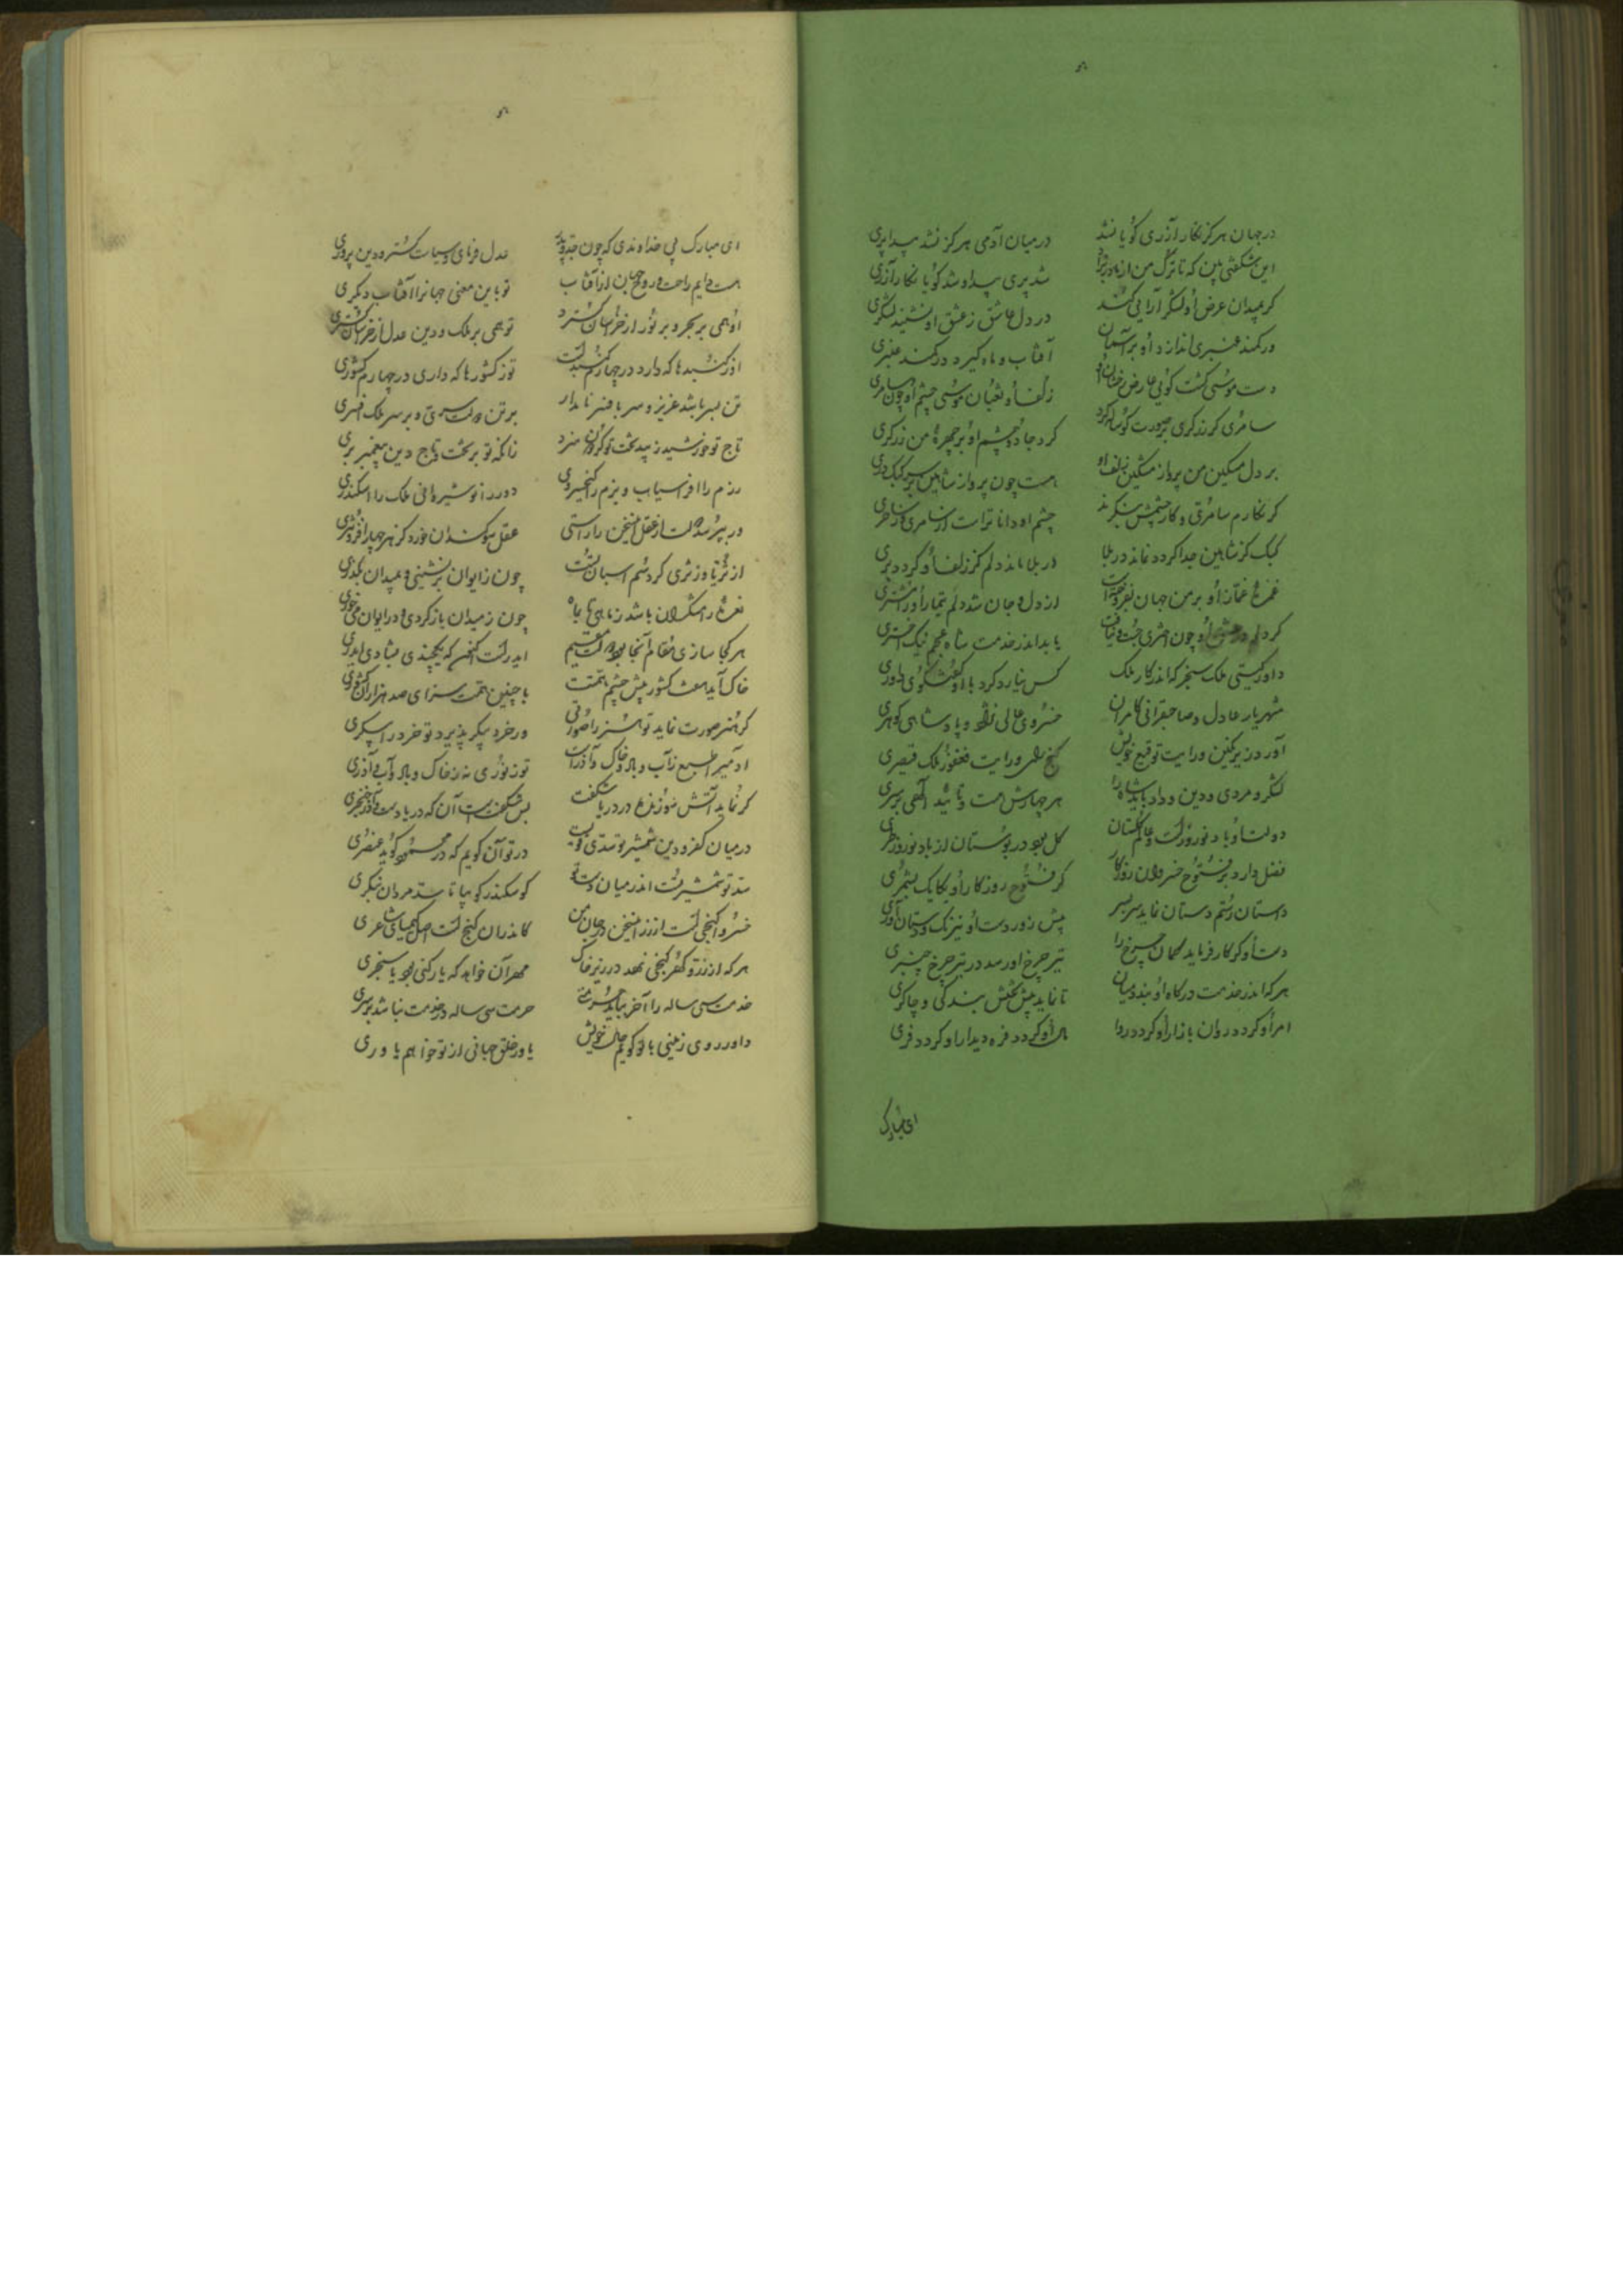 در جهان هرگز نگار آزری گویا نشد در میان آدمی هرگز نشد پیدا پری
این شگفتی بین که تا ترک من از مادر بزاد شد پری پیدا و شد گویا نگار آزری
گر بمیدان عرض او لشکر آرایی کند در دل عاشق ز عشق او نشیند لشکری
ور کمند عنبری اندازد او بر آسمان آفتاب و ماه گیرد در کمند عنبری
دست موسی گشت گویی عارض رخشان او زلف او ثعبان موسی چشم او چون سامری
سامری گر زرگری بر صورت گوساله کرد کرد جادو چشم او بر چهرهٔ من زرگری
بر دل مسکین من پرواز مشکین زلف او هست چون پرواز شاهین بر سر کبک دری
گر نگارم سامری و کار چشمش بنگرد چشم او داناترست از سامری در ساحری
کبک کز شاهین جدا گردد نماند در بلا در بلا ماند دلم کز زلف او گردد بری
غمزهٔ غماز او بر من جهان بفروخت از دل و جان شد دلم تیمار او را مشتری
گر دلم در عشق او چون مشتری جست و نیافت یابد اندر خدمت شاه عجم نیک اختری
داور گیتی ملک سنجر که اندر کار ملک کس نیارد کرد با او گفتگوی داوری
شهریار عادل و صاحبقرانی کامران خسروی عالی نظر و پادشاهی گوهری
آورد زیر نگین و رایت توقیع خویش گنج رای و رایت فغفور و ملک قیصری
لشکر و مردی و دین و داد باید شاه را هر چهارش هست و تأیید الهی بر سری
دولت او باد نوروزست و عالم گلستان گل بود در بوستان از باد نوروزی طری
فضل دارد بر فتوح خسروان روزگار گر فتوح روزگار او یکایک بشمری
داستان رستم دستان نماید سربسر پیش زور دست او نیرنگ و دستان آوری
دست او گر کار فرماید کمان چرخ را تیر چرخ او رسد در تیر چرخ چنبری
هر که اندر خدمت درگاه او بندد میان تا نماید پیش تختش بندگی و چاکری
امر او گردد روان بازار او گردد روا مال او گردد فره دیدار او گردد فری
ای مبارک
ای مبارک پی خداوندی که چون جد و پدر عدل فرمای و سیاست گستر و دین پروری
هست دایم راحت و روح جهان از آفتاب تو باین معنی جهانرا آفتاب دیگری
او همی بر بحر و بر نور از خراسان گسترد تو همی بر ملک و دین عدل از خراسان گستری
او ز گنبدها که دارد در چهارم گنبدست تو ز کشورها که داری در چهارم کشوری
تن بسر باشد عزیز و سر بافسر نامدار بر تن دولت سری و بر سر ملک افسری
تاج تو خورشید زیبد تخت تو گردون سزد زانکه تو بر تخت و تاج دین پیغمبر بری
رزم را افراسیاب و بزم را کیخسروی دور را نوشیروانی ملک را اسکندری
ور بپرسد دولت از عقل این سخن را راستی عقل سوگندان خورد کز هر چهار افزونتری
از ثریا وز ثری گرد سم اسبان تست چون ز ایوان برنشینی و بمیدان بگذری
نعرهٔ رامشگران باشد ز ماهی تا بماه چون ز میدان باز گردی و در ایوان می خوری
هر کجا سازی مقام آنجا بود دولت مقیم ایدرست اکنون که یکچندی بشادی ایدری
خاک آید هفت کشور پیش چشم همتت با چنین همت سزای صد هزاران کشوری
گر هنر صورت نماید تو هنر را صورتی ور خرد پیکر پذیرد تو خرد را پیکری
آدمی را طبع ز آب و باد و خاک و آذرست تو ز نوری نه ز خاک و باد و آب و آذری
گر نماید آتش سوزنده در دریا شگفت بس شگفتست آن که دریا دست و آذر خنجری
در میان کفر و دین شمشیر تو سدی قویست در تو آن گویم که در محمود گوید عنصری
سد تو شمشیر تست اندر میان دست تو کو سکندر گو بیا تا سد مردان بنگری
خسروا گنجی است از زر این سخن در جان من کاندران گنج است اصل کیمیای شاعری
هر که از زر و گهر گنجی نهد در زیر خاک مهر آن خواهد که یا رکنی بود یا سنجری
خدمت سی ساله را آخر بباید حرمتی حرمت سی ساله خدمت نباشد سرسری
داور روی زمینی با تو گویم حال خویش یاور خلق جهانی از تو خواهم یاوری